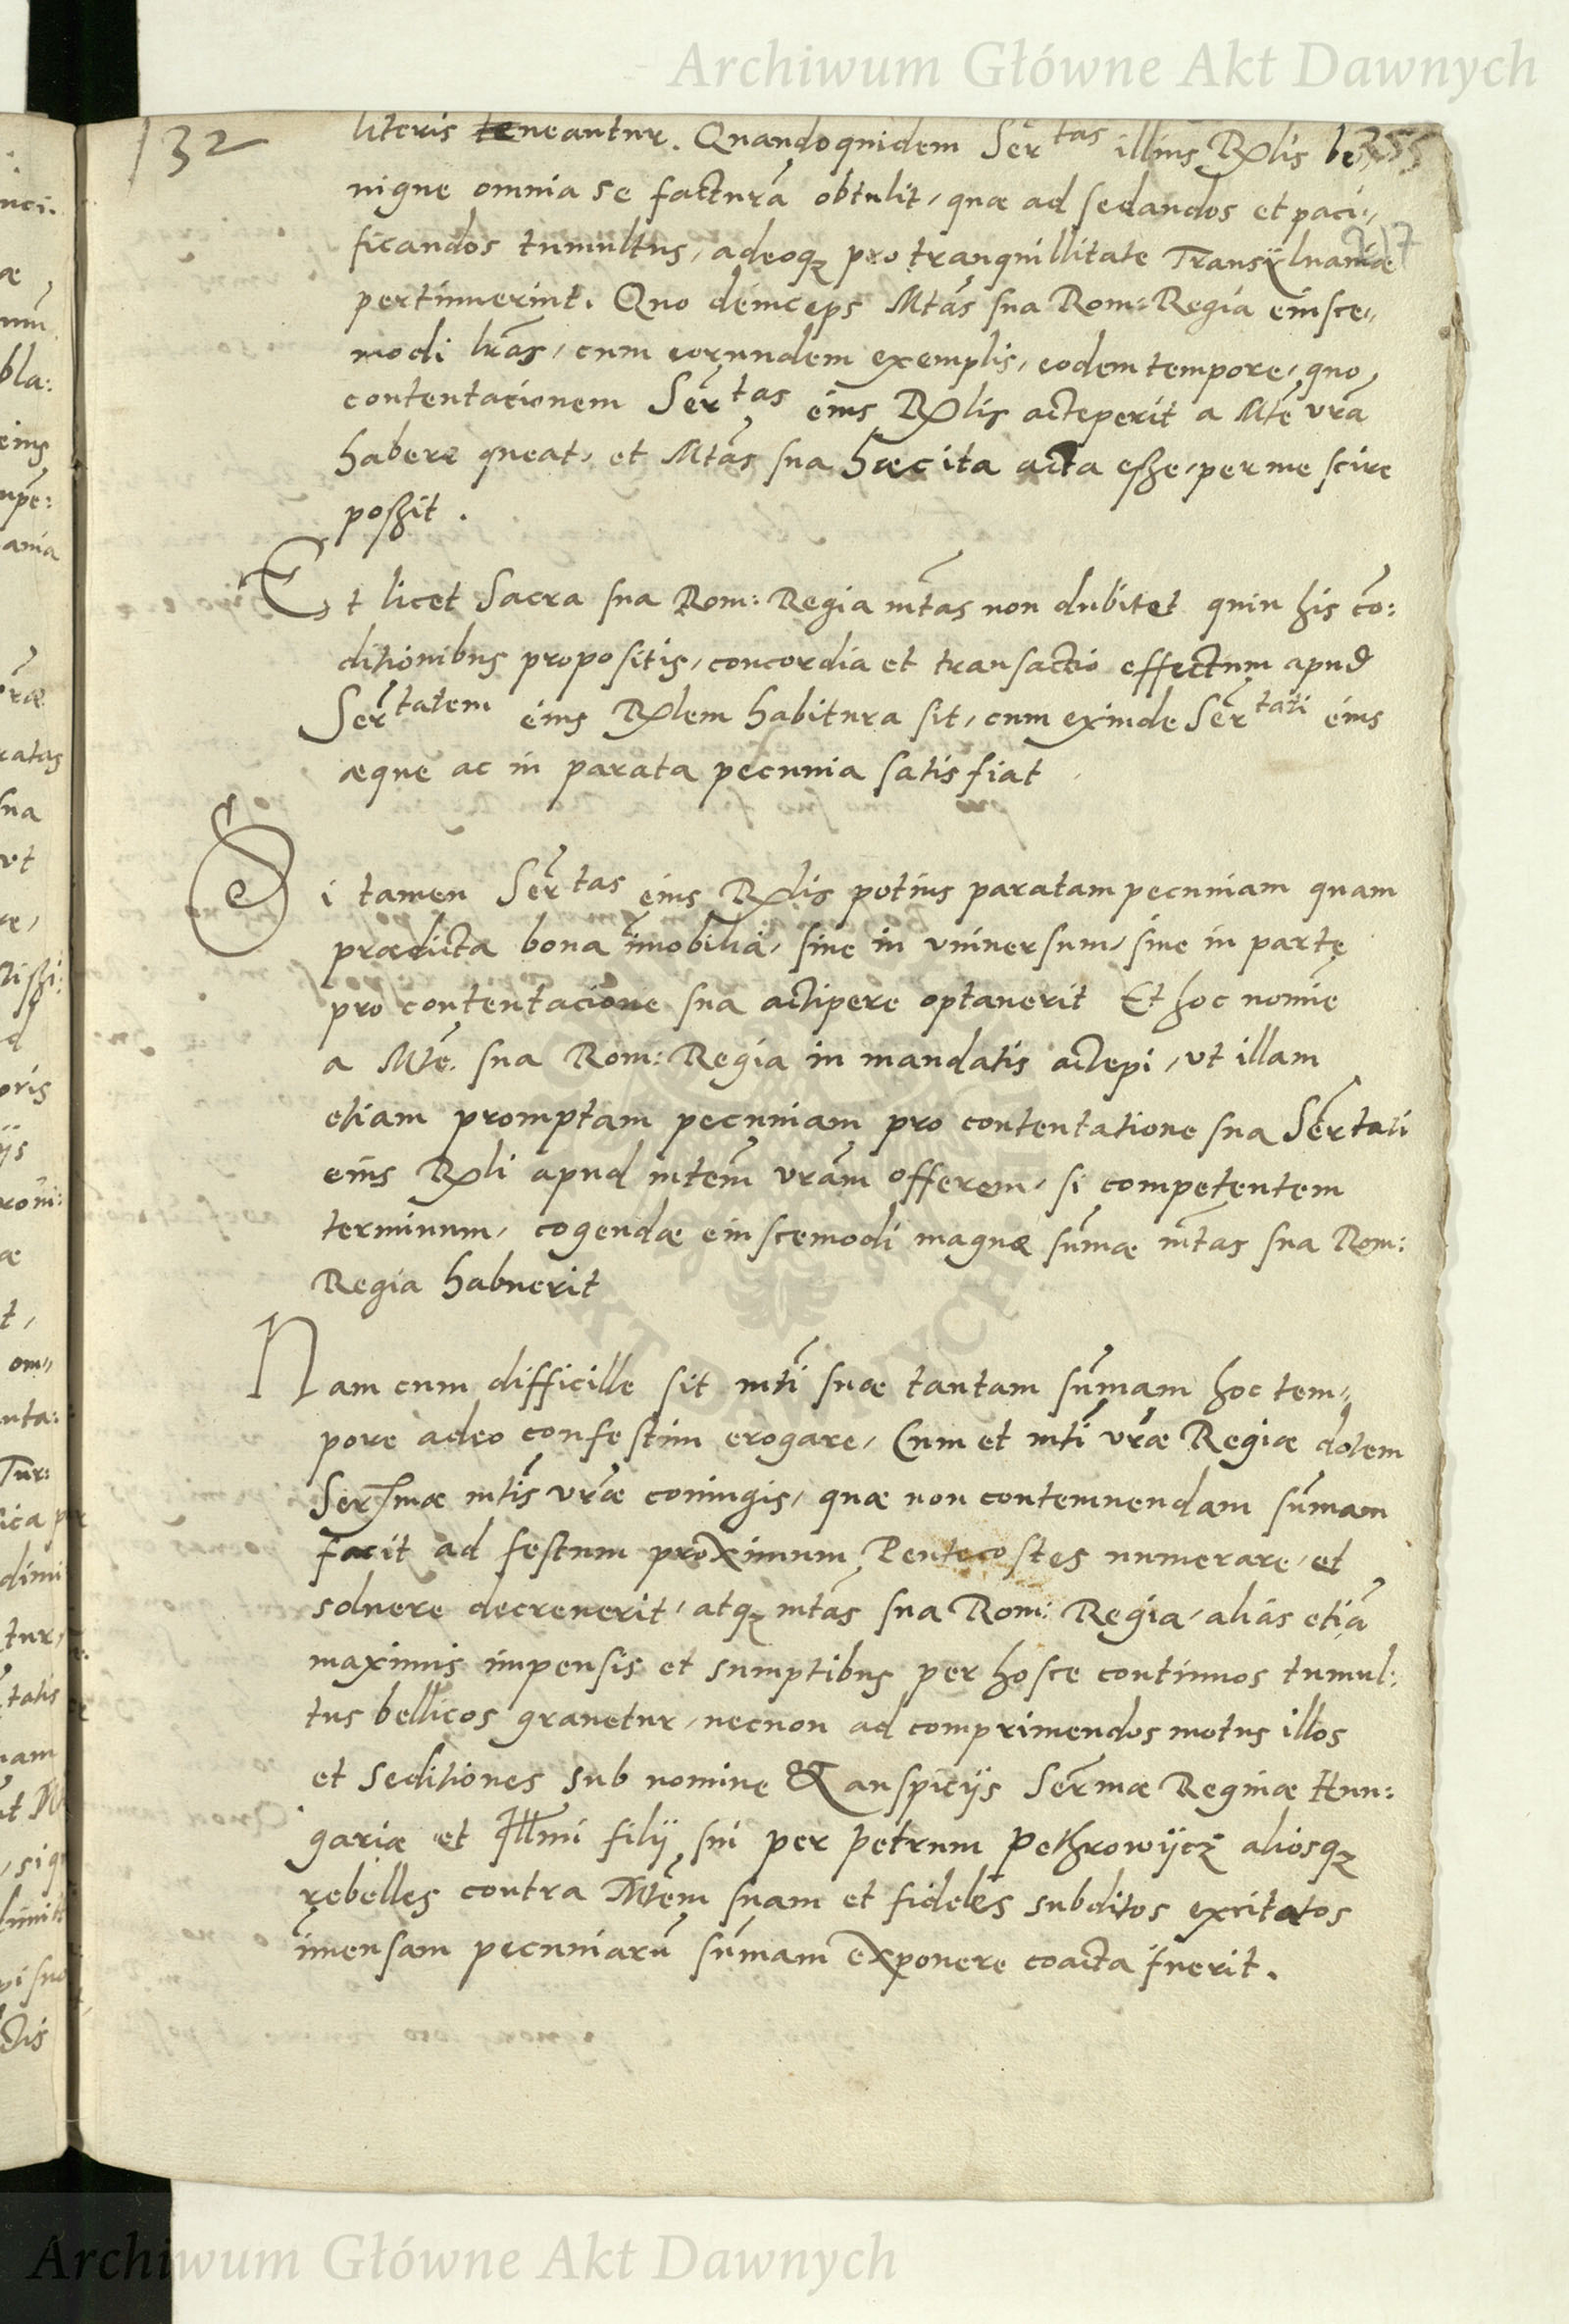 Archiwum Główne Akt Dawnych
132
literis teneantur. Quandoquidem Ser̃tas illius Rx̃lis be,, 355
nigne omnia se facturã obtulit, quæ ad sedandos et paci,,
ficandos tumultus, adeoqꝫ pro tranquillitate Transÿluaniæ
pertinuerint. Quo deinceps Mtãs sua Rom: Regia eiusce,,
modi lr̃as, cum eorundem exemplis, eodem tempore, quo
contentacionem Ser̃tas eius Rx̃lis acceperit a Mtẽ vrã
habere queat, et Mtãs sua hæc ita acta eße, per me scire
poßit .
Et licet Sacra sua Rom: Regia mt̃as non dubitet quin his cõ:
ditionibus propositis, concordia et transactio effectum apud
Ser̃tatem eius Rx̃lem habitura sit, cum exinde Ser̃tati eius
æque ac in parata pecunia satisfiat
Si tamen Ser̃tas eius Rx̃lis potius paratam pecuniam quam
prædicta bona im̃obilia, siue in vniuersum, siue in parte
pro contentacione sua accipere optauerit Et hoc nomiẽ
a Mtẽ. sua Rom: Regia in mandatis accepi, vt illam
etiam promptam pecuniam pro contentatione sua Ser̃tati
eius Rx̃li apud mtem̃ vrãm offerem, si competentem
terminum, cogendæ eiuscemodi magnæ sum̃æ mt̃as sua Rom:
Regia habuerit
Nam cum difficille sit mtĩ suæ tantam sum̃am hoc tem,,
pore adeo confestim erogare, Cum et mtĩ vrãe Regiæ dotem
Serꝭmæ mtĩs vrãe coniugis, quæ non contemnendam sum̃am
facit ad festum proximum Pentecostes numerare, et
soluere decreuerit, atqꝫ mtãs sua Rom: Regia, aliàs etiã
maximis impensis et sumptibus per hosce continuos tumul:
tus bellicos grauetur, necnon ad comprimendos motus illos
et seditiones sub nomine & auspicijs Ser̃mæ Reginæ Hun:
gariæ et Illmi filij sui per Petrum Pethrowÿcz aliosqꝫ
rebelles contra Mtem̃ suam et fideles subditos excitatos
im̃ensam pecuniarũ sum̃am exponere coacta fuerit.
Archiwum Główne Akt Dawnych